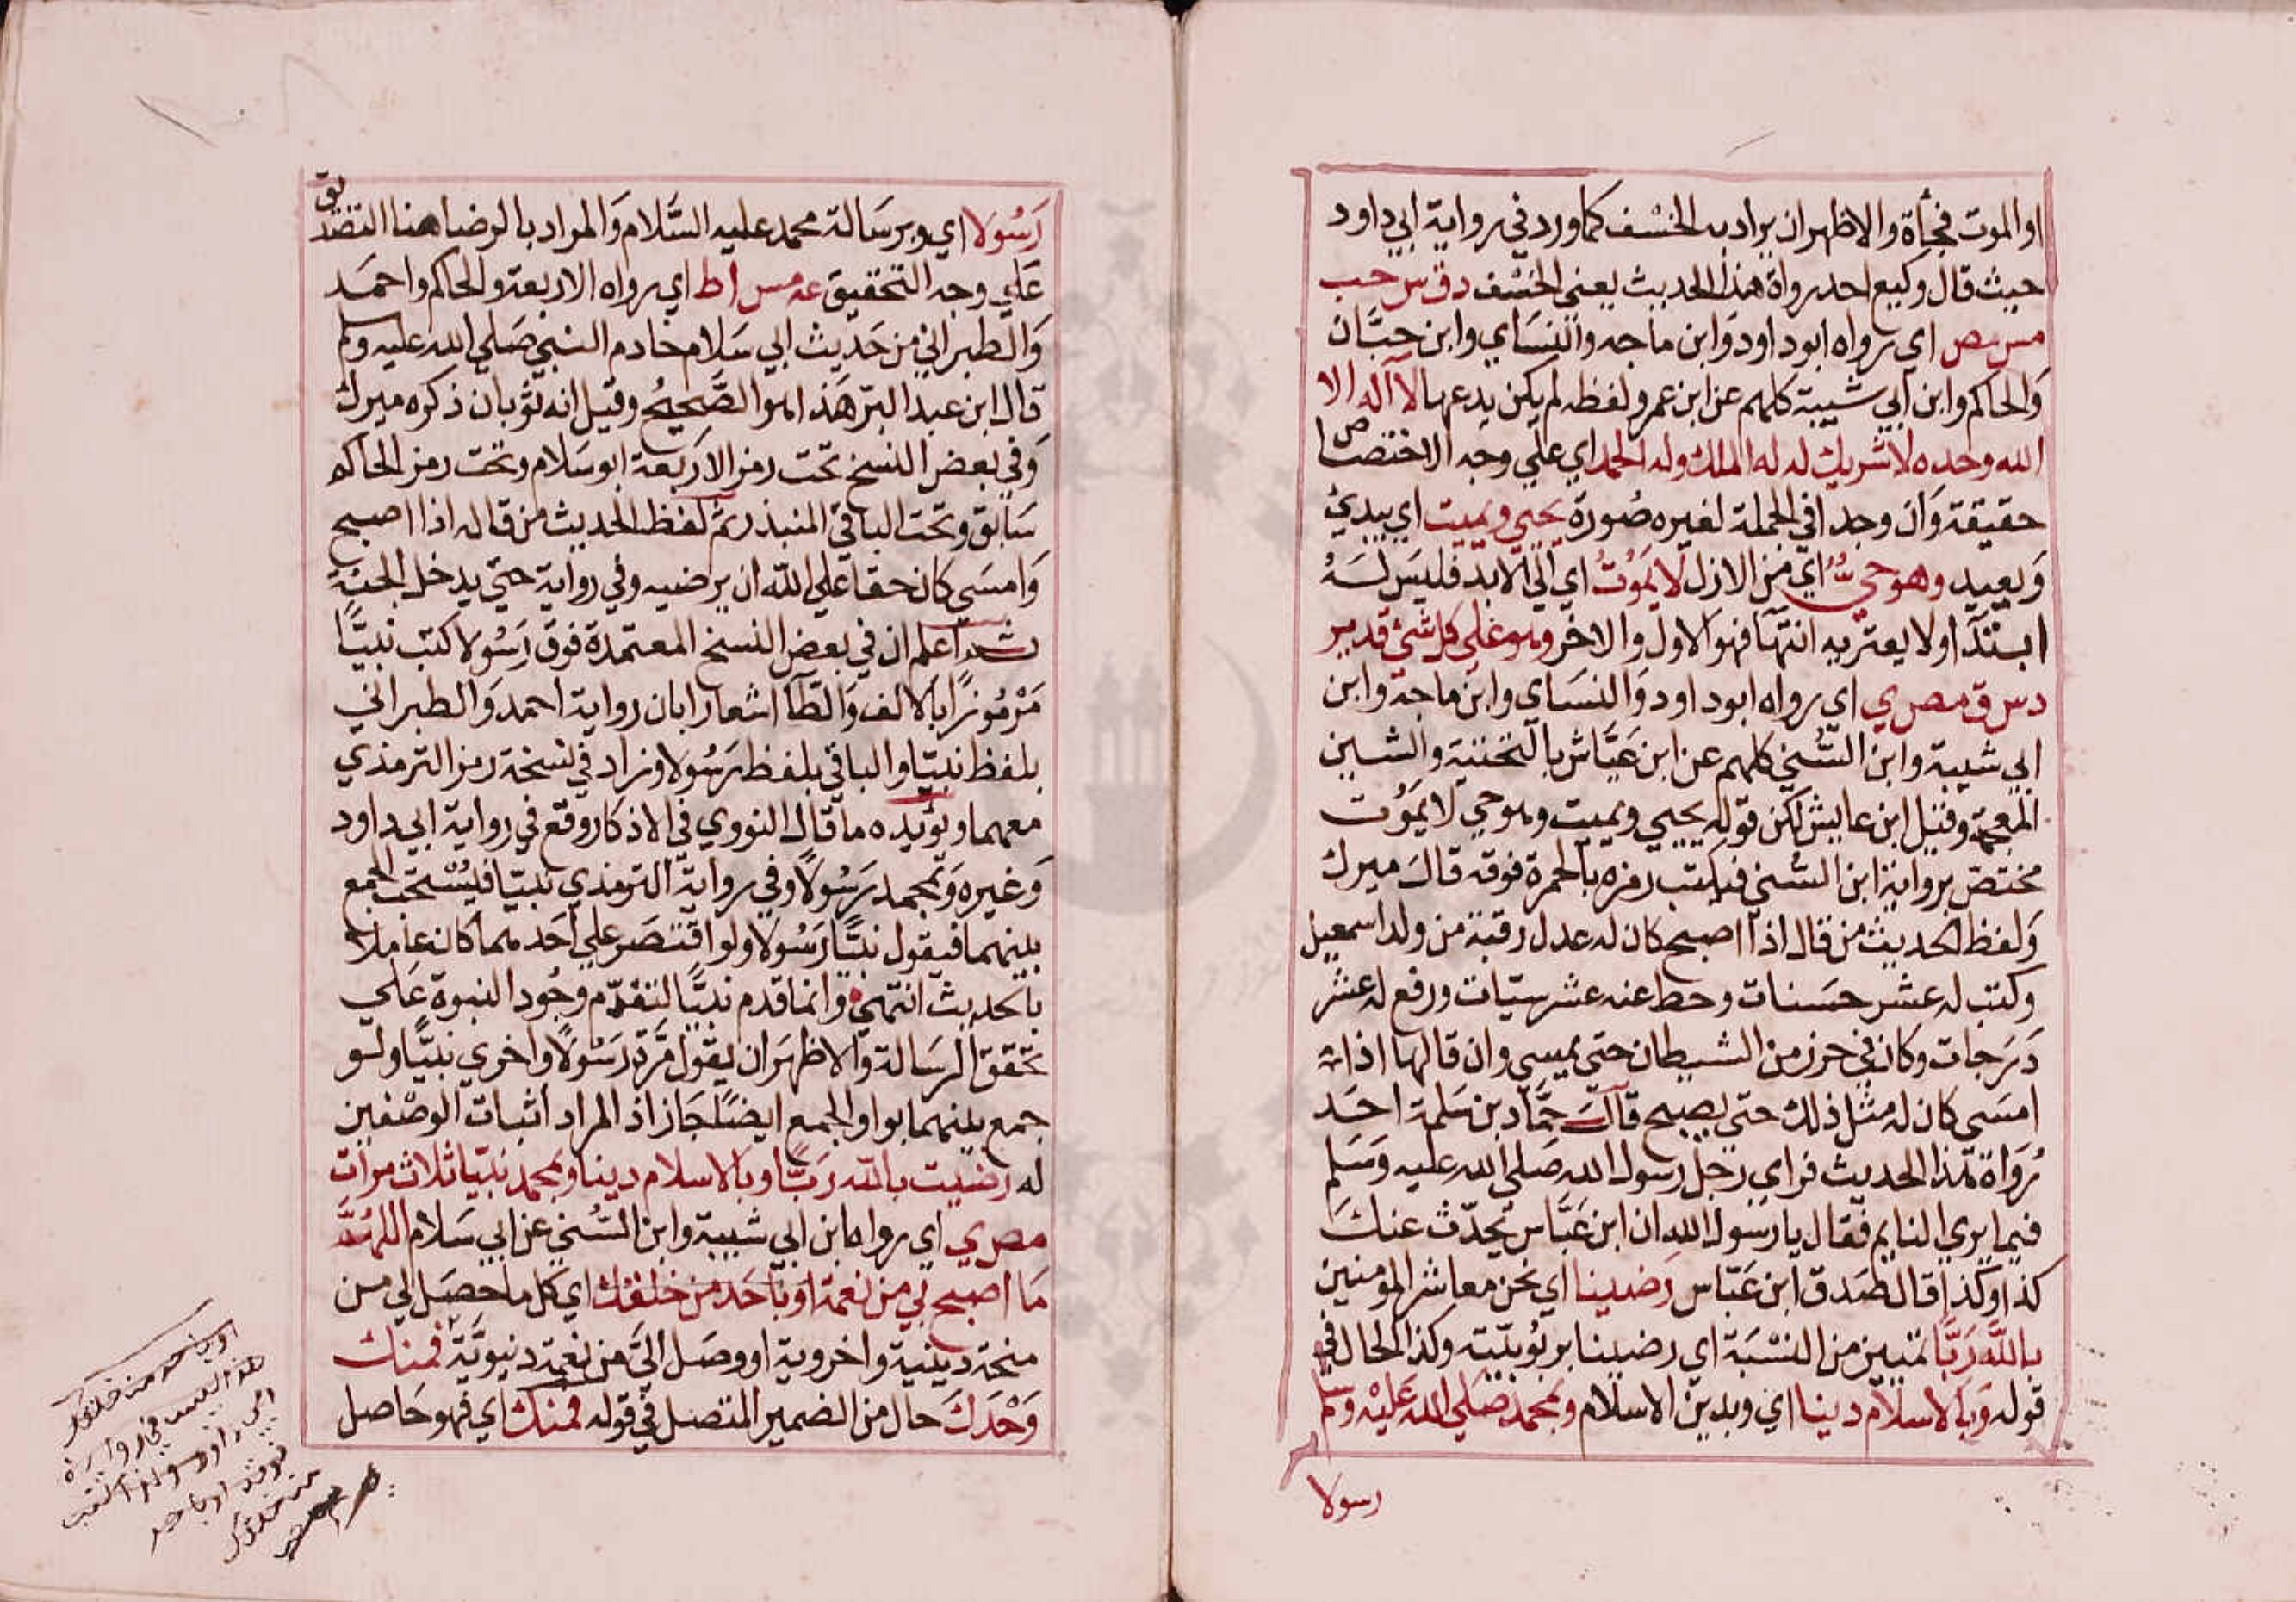 او الموت فجأة والاظهر ان يراد به الخسف كما ورد في رواية ابي داود
حيث قال وكيع احد رواة هذا الحديث يعني الخسف دق س حب
مس مص اي رواه ابو داود وابن ماجه والنساي وابن حبان
والحاكم وابن ابي شيبة كلهم عن ابن عمر ولفظه لم يكن يدعها لا اله الا
الله وحده لا شريك له له الملك وله الحمد اي علي وجه الاختصاص
حقيقة وان وجد في الجملة لغيره صورة يحيي ويميت اي يبدئ
ويعيد وهو حي اي من الازل لا يموت اي الي الابد فليس له
ابتدا ولا يعتريه انتها فهو الاول والاخر وهو علي كل شئ قدير
دس ق مص ري اي رواه ابو داود والنساي وابن ماجة وابن
ابي شيبة وابن السني كلهم عن ابن عياش بالتحتية والشين
المعجمة وقيل ابن عايش لكن قوله يحيي ويميت وهو حي لا يموت
مختص برواية ابن السني فيكتب رمزه بالحمرة فوقه قال ميرك
ولفظ الحديث من قال اذا اصبح كان له عدل رقبة من ولد اسمعيل
وكتب له عشر حسنات وحط عنه عشر سيئات ورفع له عشر
درجات وكان في حرز من الشيطان حتي يمسي وان قالها اذا
امسي كان له مثل ذلك حتي يصبح قال حماد بن سلمة احد
رواة هذا الحديث فراي رجل رسول الله صلي الله عليه وسلم
فيما يري النايم فقال يا رسول الله ان ابن عباس يحدث عنك
كذا وكذا قال صدق ابن عباس رضينا اي نحن معاشر المومنين
بالله ربا تمييز من النسبة اي رضينا بربوبيته وكذا الحال في
قوله وبالاسلام دينا اي وبدين الاسلام وبمحمد صلي الله عليه وسلم
رسولا
رسولا اي وبرسالة محمد عليه السلام والمراد بالرضا هنا التصديق
علي وجه التحقيق عه مس اط اي رواه الاربعة والحاكم واحمد
والطبراني من حديث ابي سلام خادم النبي صلي الله عليه وسلم
قال ابن عبد البر هذا هو الصحيح وقيل انه ثوبان ذكره ميرك
وفي بعض النسخ تحت رمز الاربعة ابو سلام وتحت رمز الحاكم
سابق وتحت الباقي المنيذر ثم لفظ الحديث من قاله اذا اصبح
وامسي كان حقا علي الله ان يرضيه وفي رواية حتي يدخل الجنة
ثم اعلم ان في بعض النسخ المعتمدة فوق رسولا كتب نبيا
مرموزا بالالف والطا اشعارا بان رواية احمد والطبراني
بلفظ نبيا والباقي بلفظ رسولا وزاد في نسخة رمز الترمذي
معهما ويؤيده ما قال النووي في الاذكار وقع في رواية ابي داود
وغيره وبمحمد رسولا وفي رواية الترمذي نبيا فيستحب الجمع
بينهما فيقول نبيا رسولا ولو اقتصر علي احدهما كان عاملا
بالحديث انتهي وانما قدم نبيا لتقدم وجود النبوة علي
تحقق الرسالة والاظهر ان يقول مرة رسولا واخري نبيا ولو
جمع بينهما بواو الجمع ايضا جاز اذ المراد اثبات الوصفين
له رضيت بالله ربا وبالاسلام دينا وبمحمد نبيا ثلاث مرات
مص ري اي رواه ابن ابي شيبة وابن السني عن ابي سلام اللهم
ما اصبح بي من نعمة او باحد من خلقك اي كل ما حصل لي من
منحة دينية واخروية او وصل الي من نعمة دنيوية فمنك
وحدك حال من الضمير المتصل في قوله فمنك اي فهو حاصل
او باحد من خلقك